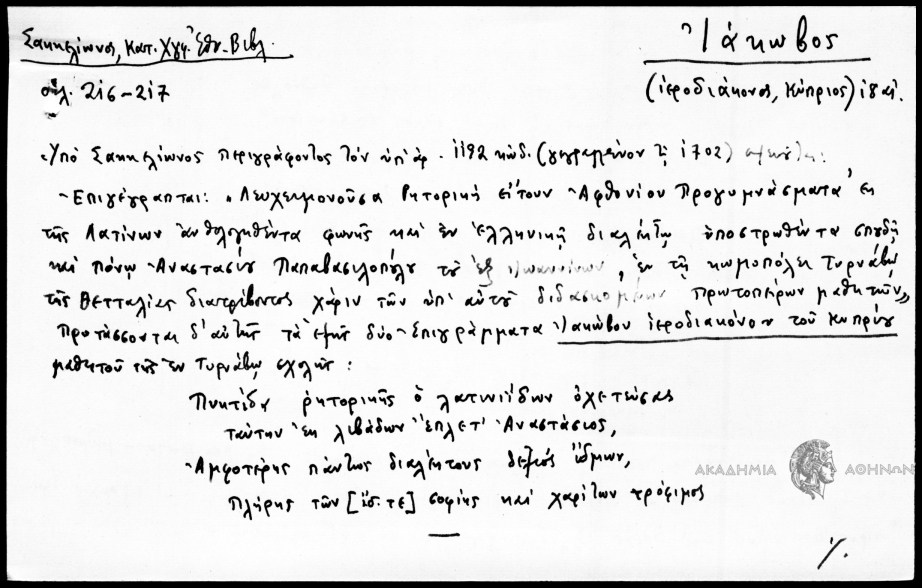 Σακκελίωνος, Κατ. Χγφ. Ἐθν. Βιβλ.
Ἰάκωβος
σελ. 216-217
(ἱεροδιάκονος, Κύπριος) ιηʹ αἰ.
Ὑπὸ Σακκελίωνος περιγράφοντος τὸν ὑπ' ἀρ. 1192 κώδ. (γεγραμμένον τῷ 1702)
Ἐπιγέγραπται: "Λευχειμονοῦσα Ρητορικὴ εἴτουν Ἀφθονίου Προγυμνάσματα ἐκ
τῆς Λατίνων ἀνθολογηθέντα φωνῆς καὶ ἐν ἑλληνικῇ διαλέκτῳ ὑποστρωθέντα σπουδῇ
καὶ πόνῳ Ἀναστασίου Παπαβασιλοπούλου τοῦ ἐξ Ἰωαννίνων, ἐν τῇ κωμοπόλει Τυρνάβῳ
τῆς Θετταλίας διατρίβοντος χάριν τῶν ὑπ' αὐτοῦ διδασκομένων πρωτοπείρων μαθητῶν"
Προτάσσονται δ' αὐτῆς τὰ ἑξῆς δύο ἐπιγράμματα Ἰακώβου ἱεροδιακόνου τοῦ Κυπρίου
μαθητοῦ τῆς ἐν Τυρνάβῳ σχολῆς:
ῥητορικῆς ὁ λατινιίδων ὀχετεύσας
ταύτην ἐκ λιβάδων ἔπλετ' Ἀναστάσιος,
Ἀμφοτέρης πάντως διαλέκτους δεξιὸς ἴδμων,
πλήρης τῶν [ἔς τε] σοφίης καὶ χαρίτων τρόφιμος
ΑΚΑΔΗΜΙΑ ΑΘΗΝΩΝ
%.